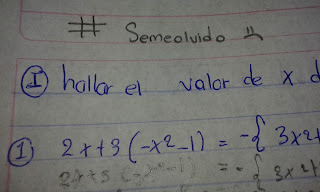 # Semeolvido
I hallar el valor de x d
1 2x+3(-x²-1) = -{ 3x²+
2x+3(-x²-1) = -{ 3x²+